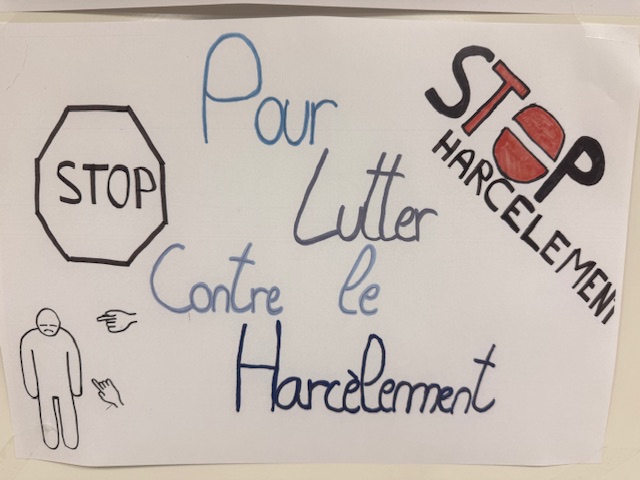 Pour
Lutter
Contre le
Harcèlement
STOP
STOP
HARCELEMENT